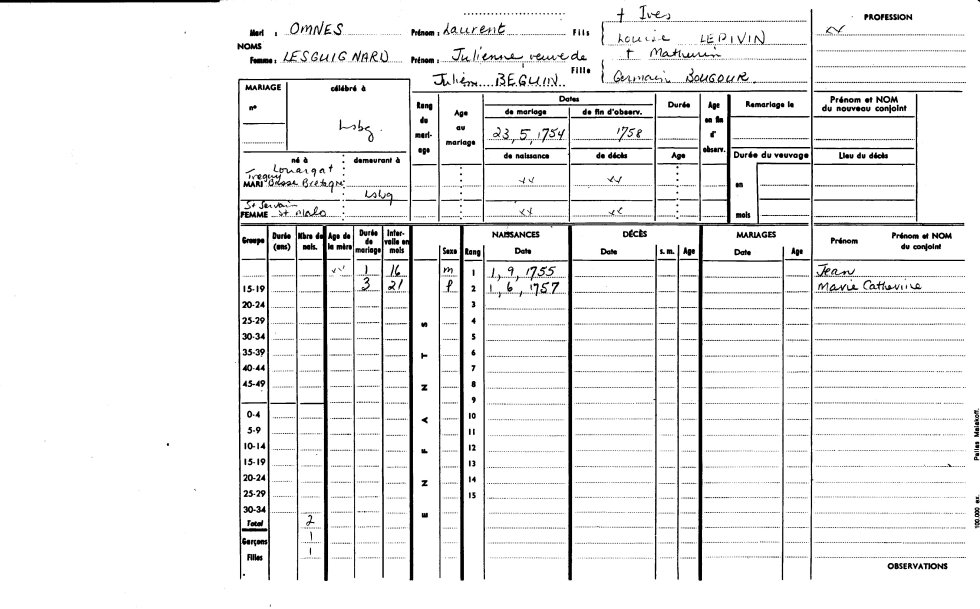 † Ives
PROFESSION
Mari : OMNES Prénom : Laurent Fils Louise LEPIVIN
NOMS
† Mathurin
Femme : LESGUIGNARD Prénom : Julienne, veuve de Fille
Julien BEGUIN Germain BOUGOUR.
MARIAGE célébré à Rang du mari- age Age au mariage Dates Durée Age en fin d' observ. Remariage le Prénom et NOM du nouveau conjoint
n° de mariage de fin d'observ.
Lsbg. 23, 5, 1754 1758
de naissance de décès Age Durée du veuvage Lieu du décès
né à demeurant à
Louargat
Treguy
MARI Basse Bretagne en
Lsbg
St Servain
FEMME St Malo mois
Groupe Durée (ans) Nbre de nais. Age de la mère Durée de mariage Inter- valle en mois Sexe Rang NAISSANCES Date DÉCÈS Date s. m. Age MARIAGES Date Age Prénom Prénom et NOM du conjoint
1 16 m 1 1, 9, 1755 Jean
15-19 3 21 f 2 1, 6, 1757 Marie Catherine
20-24 3
25-29 S 4
30-34 5
35-39 T 6
40-44 7
45-49 N 8
9
0-4 A 10
5-9 11
10-14 F 12
15-19 13
20-24 N 14
25-29 15
30-34 E
Total 2
Garçons 1
Filles 1
OBSERVATIONS
100.000 ex. Pellas Malakoff.